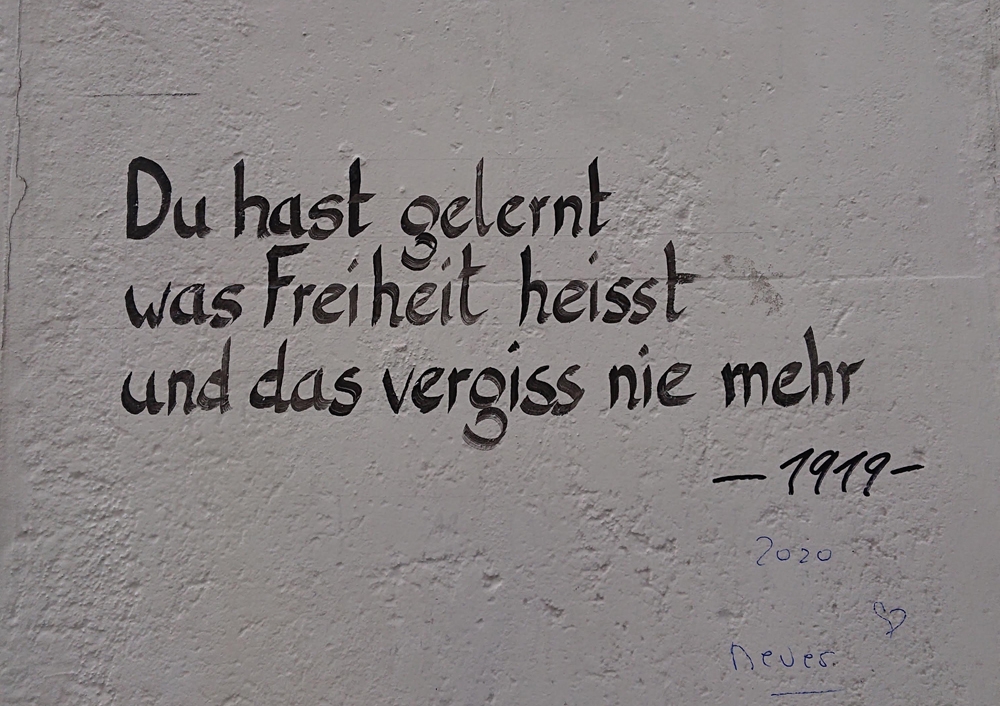 Du hast gelernt
was Freiheit heisst
und das vergiss nie mehr
- 1919 -
2020
never.